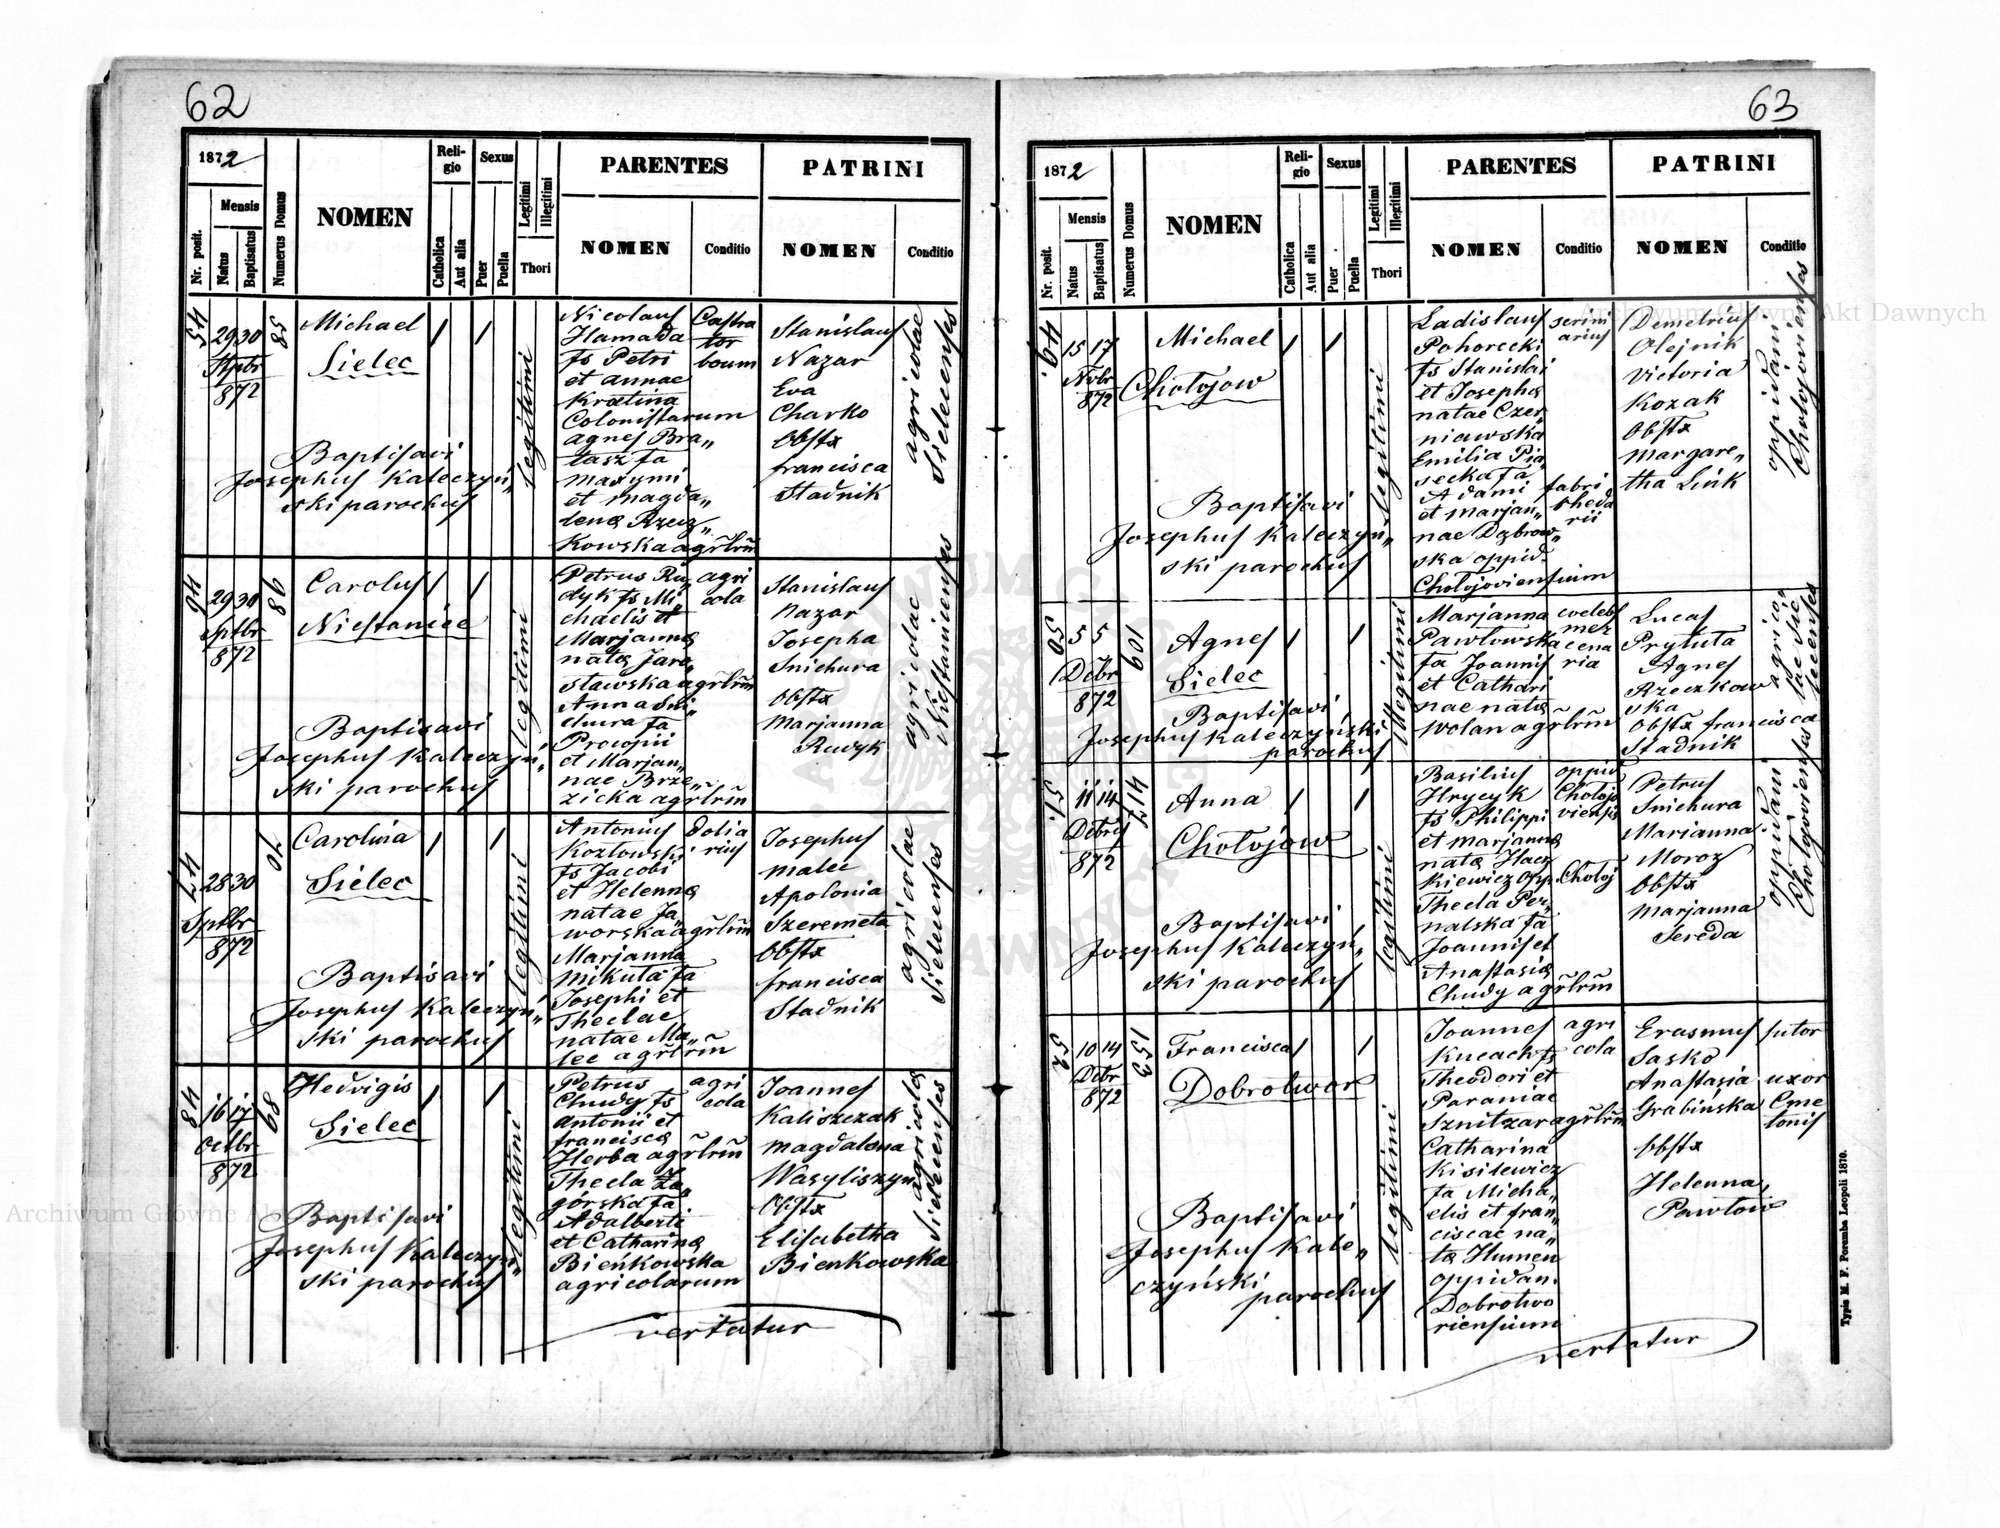 62
1872
Nr. posit.
Mensis
Natus
Baptisatus
Numerus Domus
NOMEN
Religio
Catholica
Aut alia
Sexus
Puer
Puella
Legitimi
Illegitimi
Thori
PARENTES
NOMEN
Conditio
PATRINI
NOMEN
Conditio
45
29 30
Sptbr
872
85
Michael
Sielec
Baptisavi
Josephus Kaleczyń„
ski parochus
legitimi
Nicolaus
Hamada
fs Petri
et Annae
Kratina
Colonistarum
Agnes Bra„
tasz fa
Maxymi
et Magda„
lena Rzecz„
kowska agrlrm
Castra
tor
boum
Stanislaus
Nazar
Eva
Charko
Obstx
Francisca
Stadnik
agricolae
Sielecenses
46
29 30
Sptbr
872
86
Carolus
Niestanice
Baptisavi
Josephus Kaleczyń„
ski parochus
legitimi
Petrus Ru„
dyk fs Mi
chaelis et
Marjanna
nata Jaro
sławska agrlrm
Anna Sni„
chura fa
Procopii
et Marjan„
nae Brze„
zicka agrlrm
agri
cola
Stanislaus
Nazar
Josepha
Snichura
Obstx
Marjanna
Rudyk
agricolae
Niestanienses
47
28 30
Sptbr
872
70
Carolina
Sielec
Baptisavi
Josephus Kaleczyń„
ski parochus
legitimi
Antonius
Kozłowski
fs Jacobi
et Helenna
natae Ja
worska agrlrm
Marjanna
Mikuła fa
Josephi et
Theclae
natae Ma„
lec agrlrm
dolia
rius
Josephus
Malec
Apolonia
Szeremeta
Obstx
Francisca
Stadnik
agricolae
Sielecenses
48
16 17
Octbr
872
68
Hedvigis
Sielec
Baptisavi
Josephus Kaleczyń„
ski parochus
legitimi
Petrus
Chudy fs
Antonii et
Francisca
Herba agrlrm
Thecla Za„
górska fa
Adalberti
et Catharina
Bieńkowska
agricolarum
agri
cola
Joannes
Kaliszczak
Magdalena
Wasyliszyn
Obstx
Elisabetha
Bieńkowska
agricola
Sielecenses
vertatur
63
1872
Nr. posit.
Mensis
Natus
Baptisatus
Numerus Domus
NOMEN
Religio
Catholica
Aut alia
Sexus
Puer
Puella
Legitimi
Illegitimi
Thori
PARENTES
NOMEN
Conditio
PATRINI
NOMEN
Conditio
49.
15 17
Nvbr
872
Michael
Chołojow
Baptisavi
Josephus Kaleczyń„
ski parochus
legitimi
Ladislaus
Pohorecki
fs Stanislai
et Josepha
natae Czer
niawska
Emilia Pia„
secka fa
Adami
et Marjan„
nae Dąbrow„
ska oppid.
Chołojoviensium
scrini
arius
fabri
rheda
rii
Demetrius
Olejnik
Victoria
Kozak
Obstx
Margare„
tha Link
oppidani
Chołojovienses
50
5 5
Dcbr
872
109
Agnes
Sielec
Baptisavi
Josephus Kaleczyński
parochus
illegitimi
Marjanna
Pawłowska
fa Joannis
et Cathari
nae nata
Wolan agrlrm
coelebs
mer
cena
ria
Lucas
Prytuła
Agnes
Rzeczkow
ska
Obstx Francisca
Stadnik
agrico„
lae Sie
lecenses
51.
11 14
Dcbris
872
417
Anna
Chołojów
Baptisavi
Josephus Kaleczyń„
ski parochus
legitimi
Basilius
Hrycyk
fs Philippi
et Marjanna
nata Hacz
kiewicz opp. Chołoj
Thecla Per„
nalska fa
Joannis et
Anastasia
Chudy agrlrm
oppid
Chołojo
viensis
Petrus
Snichura
Marianna
Moroz
Obstx
Marjanna
Sereda
oppidani
Chołojovienses
52
10 14
Dcbr
872
153
Francisca
Dobrotwor
Baptisavi
Josephus Kale„
czyński
parochus
legitimi
Joannes
Kucach fs
Theodori et
Paraniae
Sznitzar agrlrm
Catharina
Kisilewicz
fa Micha„
elis et Fran„
ciscae na„
ta Humen
oppidan.
Dobrotwo
riensium
agri
cola
Erasmus
Sasko
Anastasia
Grabińska
Obstx
Helenna
Pawłow
sutor
uxor
Cme
tonis
vertatur
Typis M. F. Poremba Leopoli 1870.
Archiwum Główne Akt Dawnych
Archiwum Główne Akt Dawnych